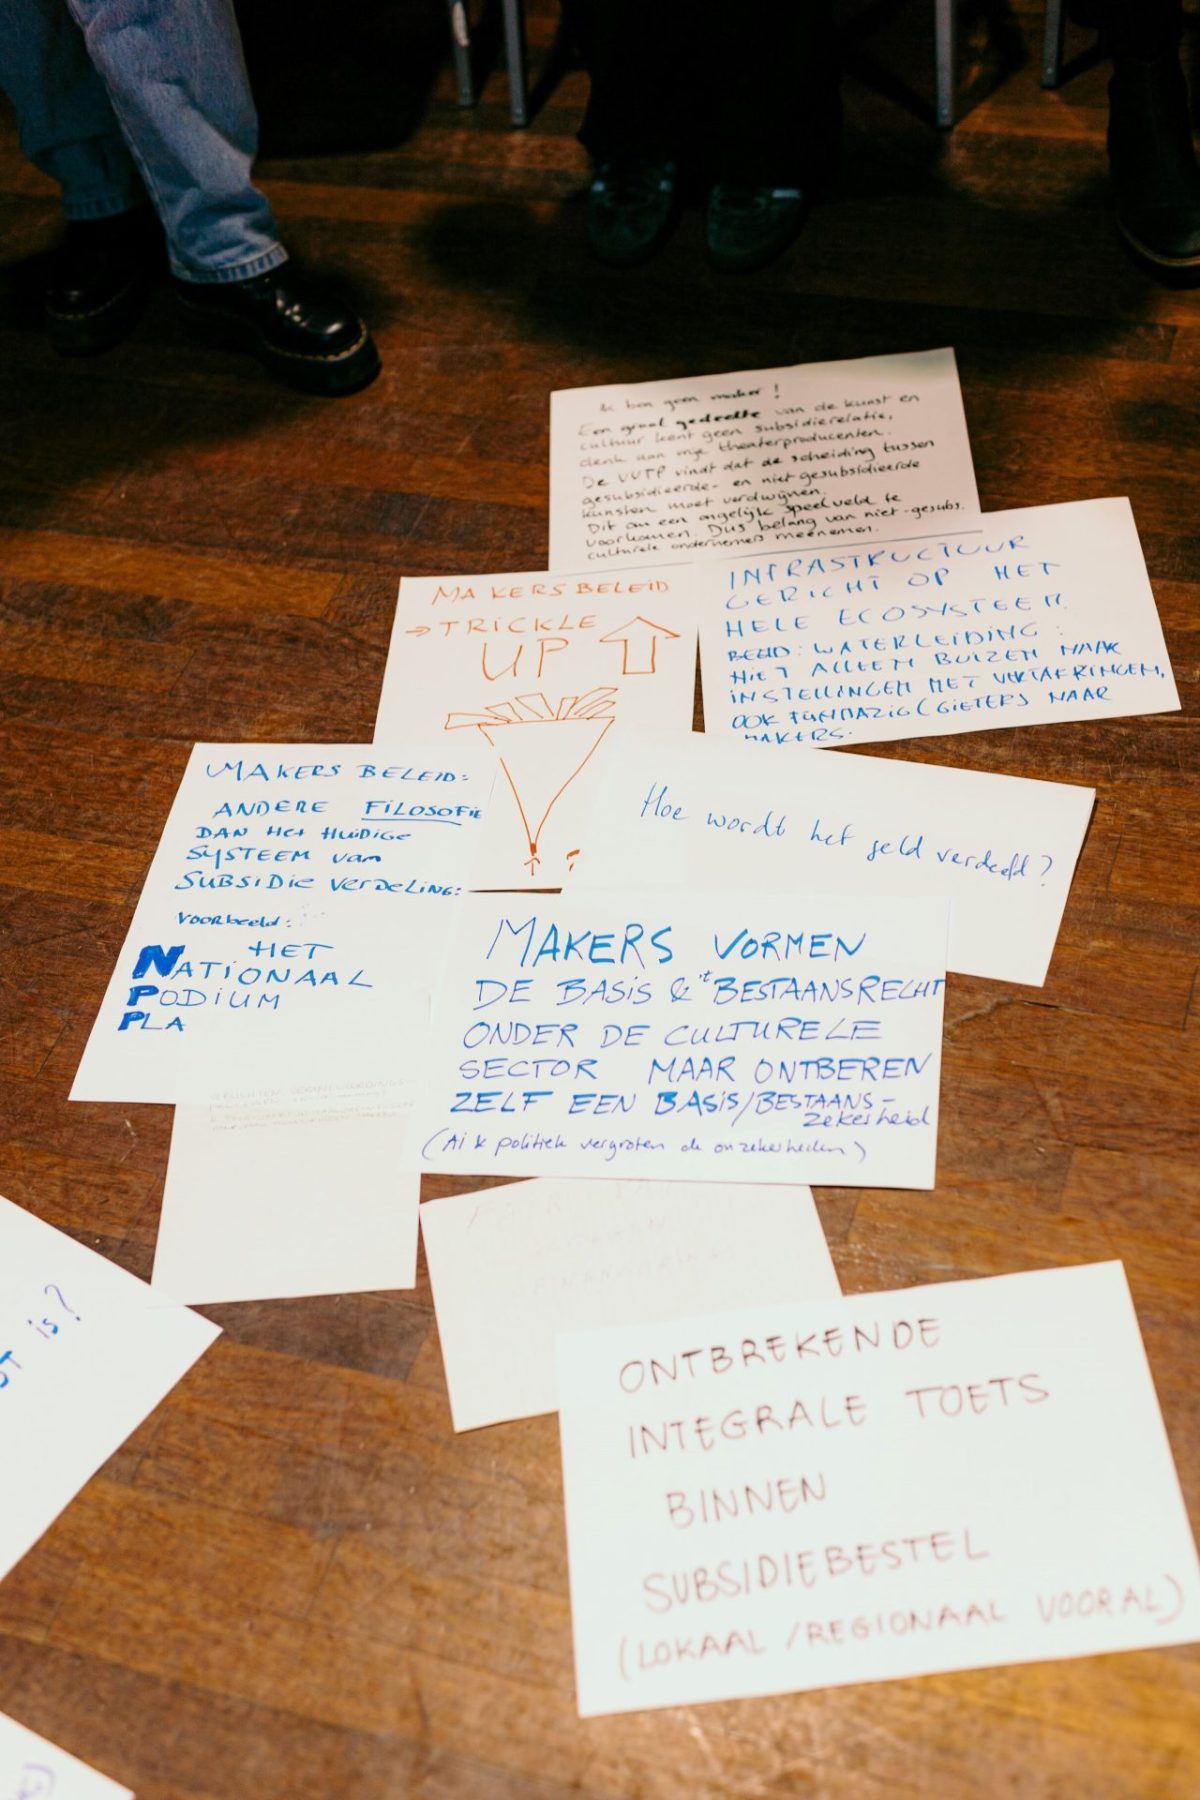 Ik ben geen maker !
Een groot gedeelte van de kunst en
cultuur kent geen subsidierelatie,
denk aan vrije theaterproducenten.
De VVTP vindt dat de scheiding tussen
gesubsidieerde- en niet gesubsidieerde
kunsten moet verdwijnen.
Dit om een ongelijk speelveld te
voorkomen. Dus belang van niet-gesubs.
culturele ondernemers meenemen.
INFRASTRUCTUUR
GERICHT OP HET
HELE ECOSYSTEEM.
BEELD: WATERLEIDING:
NIET ALLEEN BUIZEN NAAR
INSTELLINGEN MET VERTAKKINGEN,
OOK FIJNMAZIG (GIETER) NAAR
MAKERS.
MAKERSBELEID
→ TRICKLE
UP
MAKERS BELEID:
ANDERE FILOSOFIE
DAN HET HUIDIGE
SYSTEEM van
SUBSIDIE VERDELING:
voorbeeld:
HET
NATIONAAL
PODIUM
PLA
Hoe wordt het geld verdeeld?
MAKERS VORMEN
DE BASIS & 't BESTAANSRECHT
ONDER DE CULTURELE
SECTOR MAAR ONTBEREN
ZELF EEN BASIS/BESTAANS-
zekerheid
(AI & politiek vergroten de onzekerheden)
is?
ONTBREKENDE
INTEGRALE TOETS
BINNEN
SUBSIDIEBESTEL
(LOKAAL / REGIONAAL VOORAL)